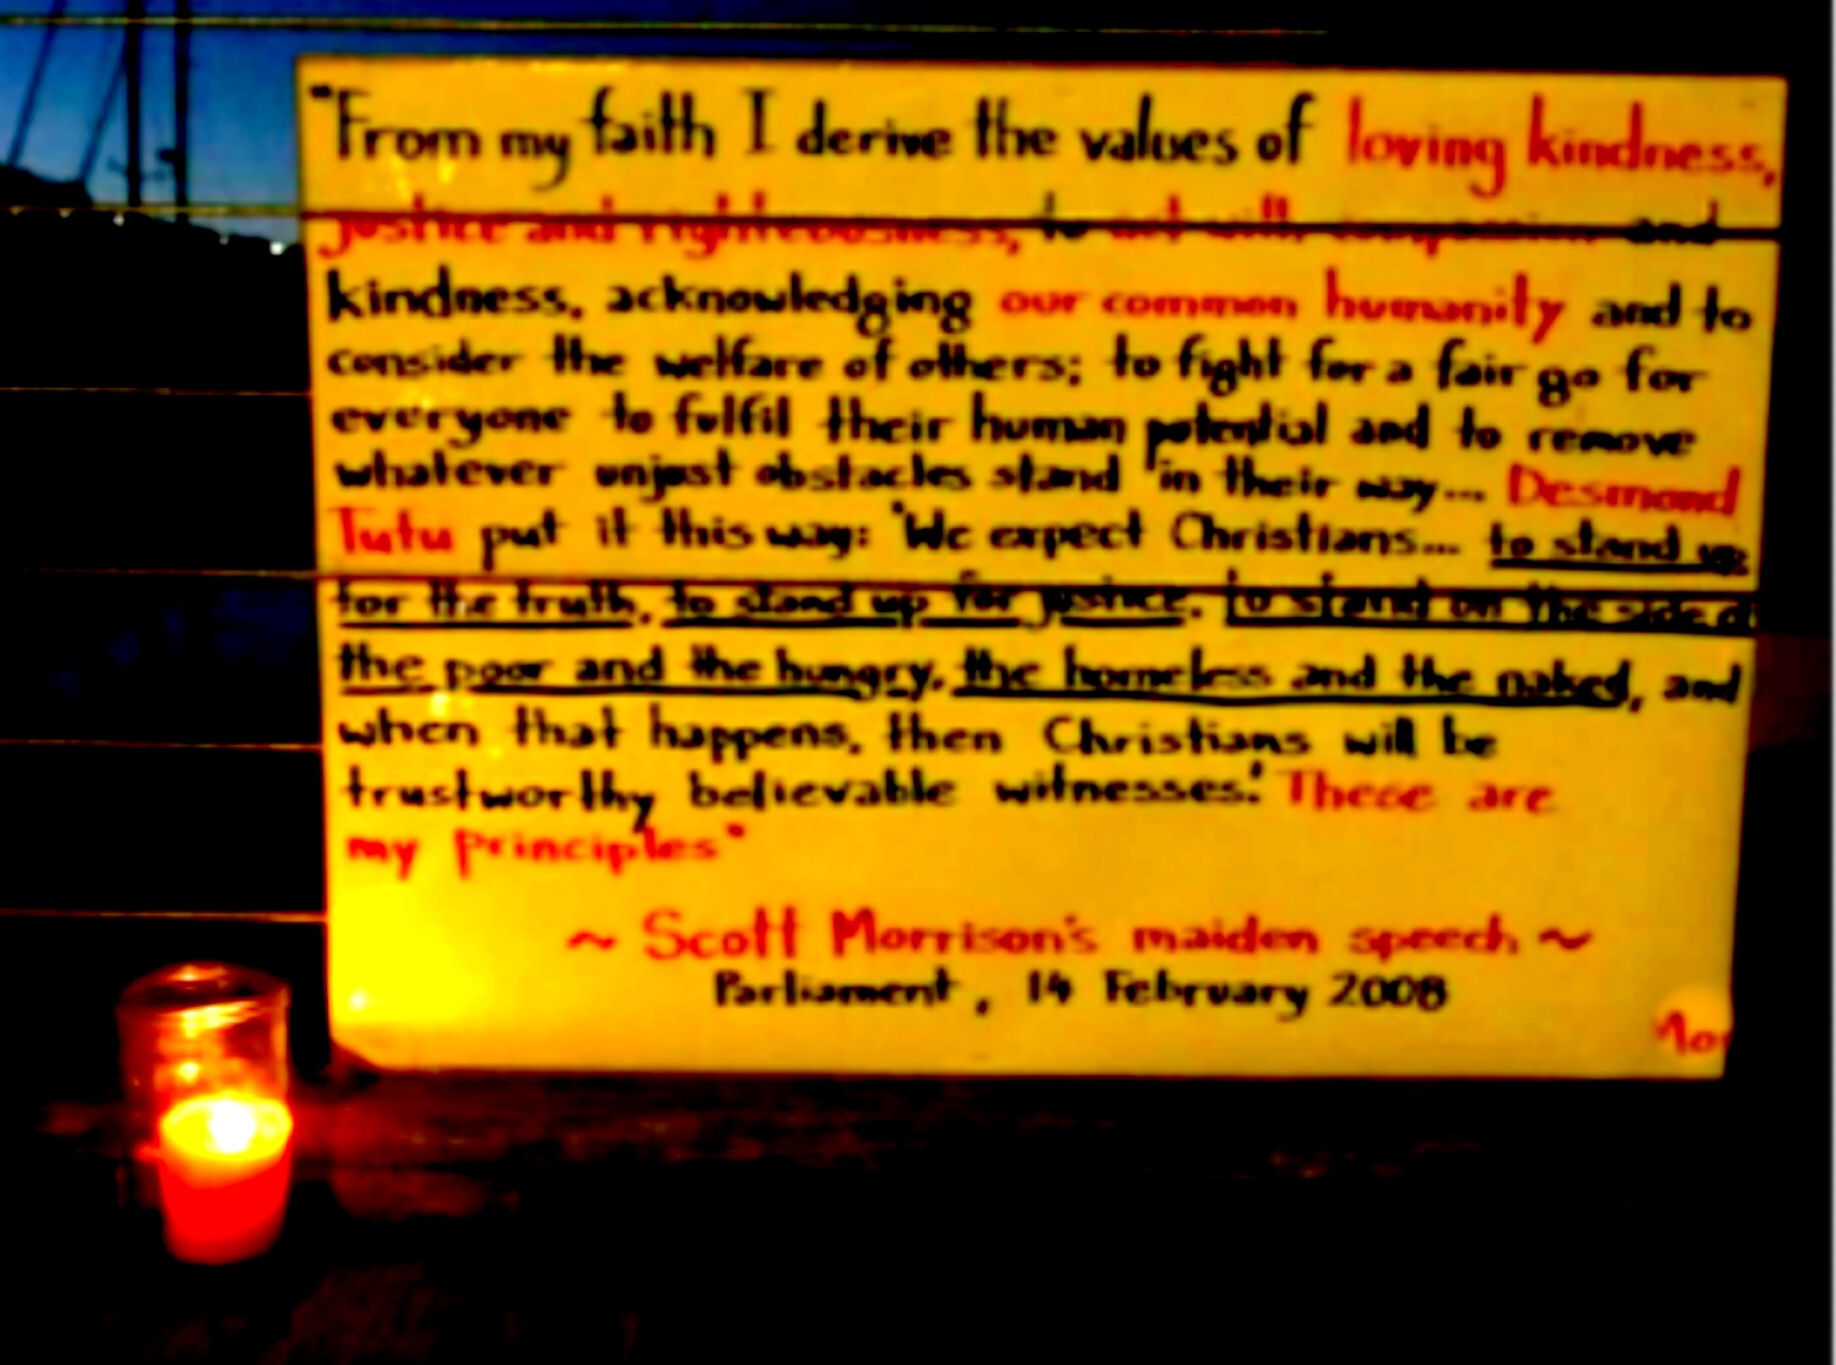 "From my faith I derive the values of loving kindness,
justice and righteousness, to act with compassion and
kindness, acknowledging our common humanity and to
consider the welfare of others; to fight for a fair go for
everyone to fulfil their human potential and to remove
whatever unjust obstacles stand in their way... Desmond
Tutu put it this way: 'We expect Christians... to stand up
for the truth, to stand up for justice, to stand on the side of
the poor and the hungry, the homeless and the naked, and
when that happens, then Christians will be
trustworthy believable witnesses.' These are
my principles"
~ Scott Morrison's maiden speech ~
Parliament, 14 February 2008